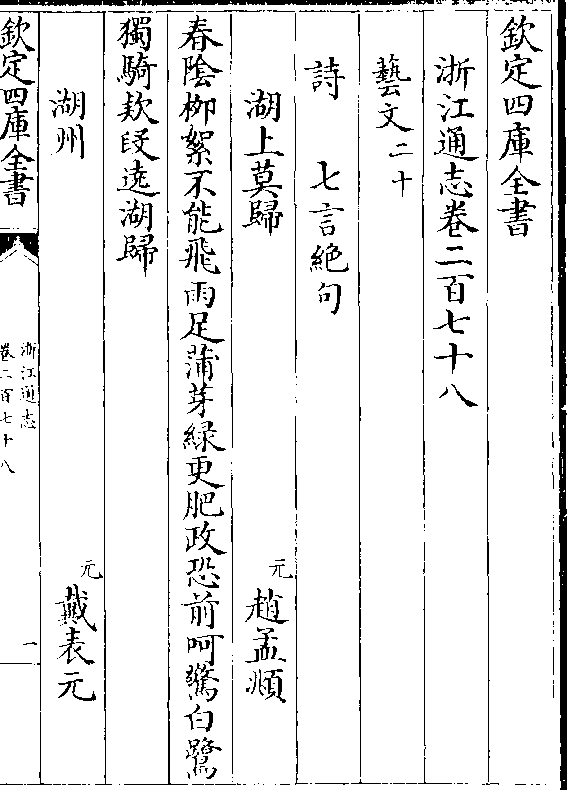 欽定四庫全書
浙江通志卷二百七十八
藝文二十
詩　七言絶句
湖上莫歸　元趙孟頫
春陰栁絮不能飛雨足蒲芽緑更肥政恐前呵驚白鷺
獨騎欵段遶湖歸
湖州　元戴表元
欽定四庫全書
浙江通志
卷二百七十八
一